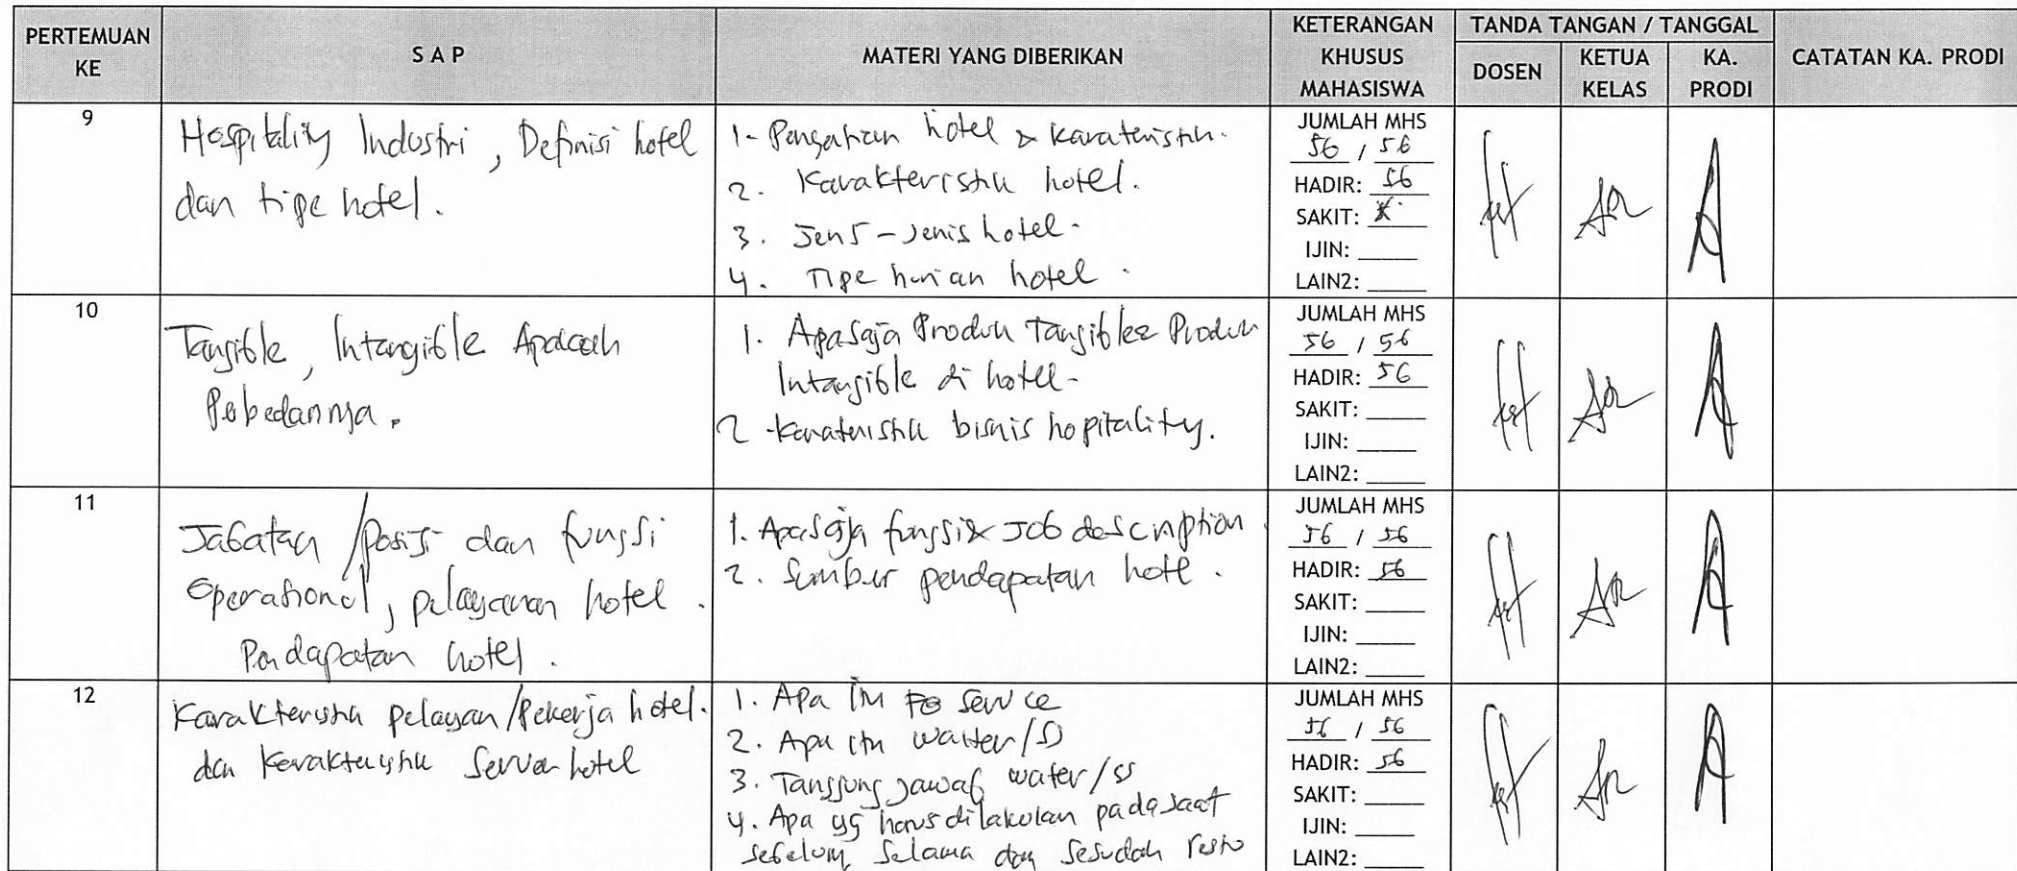 PERTEMUAN KE
S A P
MATERI YANG DIBERIKAN
KETERANGAN KHUSUS MAHASISWA
TANDA TANGAN / TANGGAL
DOSEN
KETUA KELAS
KA. PRODI
CATATAN KA. PRODI
9
Hospitality Industri, Definisi hotel
dan tipe hotel.
1- Pengertian hotel & karateristik.
2. Karakteristik hotel.
3. Jenis-Jenis hotel.
4. Tipe hunian hotel.
JUMLAH MHS
56 / 56
HADIR: 56
SAKIT:
IJIN:
LAIN2:
10
Tangible, Intangible Apacah
Pebedannya.
1. Apa saja Produk Tangible & Produk
Intangible di hotel-
2 - karateristik bisnis hopitality.
JUMLAH MHS
56 / 56
HADIR: 56
SAKIT:
IJIN:
LAIN2:
11
Jabatan /Posisi dan fungsi
Operational, pelayanan hotel.
Pendapatan hotel.
1. Apa saja fungsi & Job description.
2. Sumber pendapatan hotl.
JUMLAH MHS
56 / 56
HADIR: 56
SAKIT:
IJIN:
LAIN2:
12
Karakteristik pelayan/Pekerja hotel.
dan Karakteristik Server hotel
1. Apa itu FB service
2. Apa itu waiter/s
3. Tanggung jawab water/ss
4. Apa yg harus dilakukan pada saat
sebelum selama dan sesudah resto
JUMLAH MHS
56 / 56
HADIR: 56
SAKIT:
IJIN:
LAIN2: